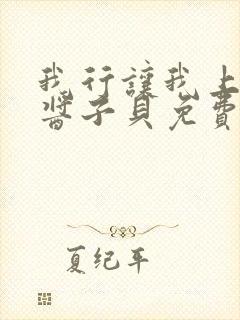 我行讓我上
醬子貝免費
夏纪年